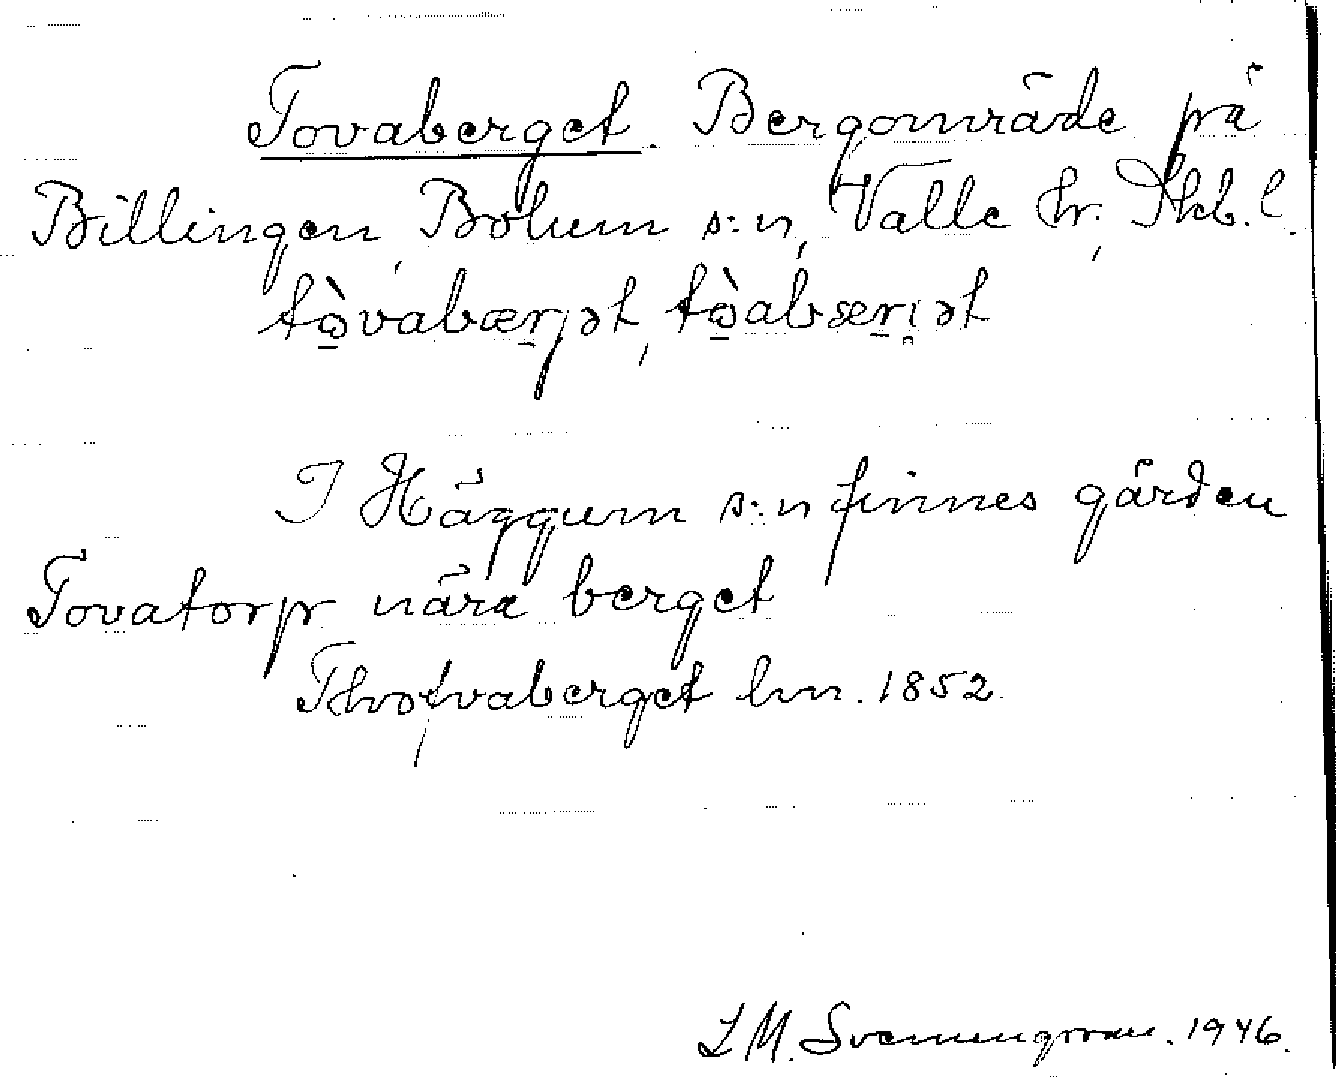 Tovaberget. Bergområde på
Billingen, Bolum s:n, Valle hr, Skb. l.
tòvabærjət, tòabærjət
I Häggum s:n finnes gården
Tovatorp nära berget
Thofvaberget hm. 1852.
S M. Svenungsson. 1946.